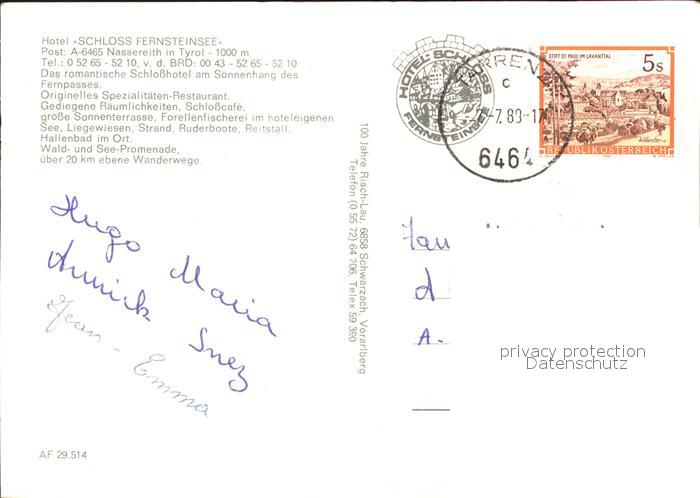 Hotel »SCHLOSS FERNSTEINSEE«
Post: A-6465 Nassereith in Tyrol - 1000 m
Tel.: 0 52 65 - 52 10, v. d. BRD: 00 43 - 52 65 - 52 10
Das romantische Schloßhotel am Sonnenhang des
Fernpasses.
Originelles Spezialitäten-Restaurant.
Gediegene Räumlichkeiten, Schloßcafé,
große Sonnenterrasse, Forellenfischerei im hoteleigenen
See, Liegewiesen, Strand, Ruderboote, Reitstall,
Hallenbad im Ort.
Wald- und See-Promenade,
über 20 km ebene Wanderwege.
HOTEL-SCHLOSS
FERNSTEINSEE
C
-7.89-17
6464
STIFT ST. PAUL IM LAVANTTAL
5s
REPUBLIK ÖSTERREICH
100 Jahre Risch-Lau, 6858 Schwarzach, Vorarlberg
Telefon (0 55 72) 64 706, Telex 59 390
Hugo Maria
Annick Inez
Jean - Emma
Fam
A.
privacy protection
Datenschutz
AF 29.514